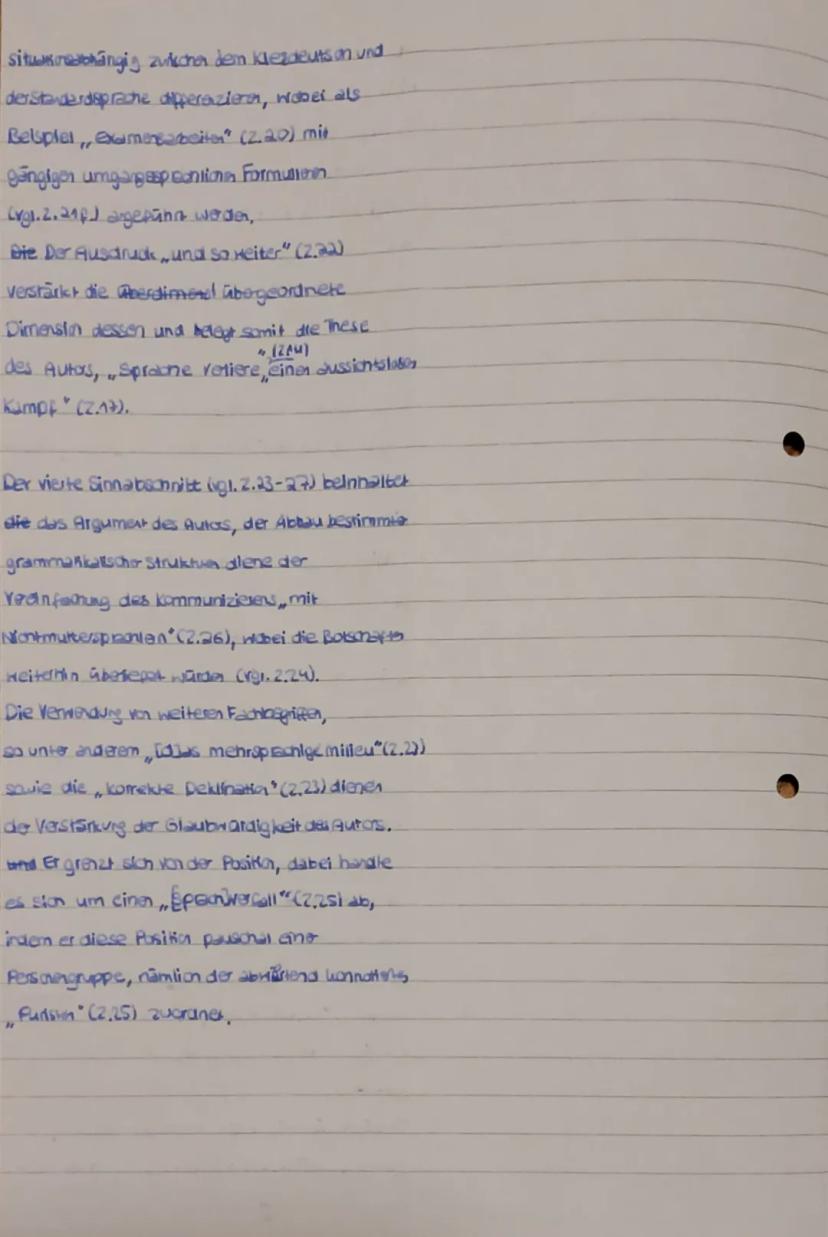 situationsabhängig zwischen dem Kiezdeutsch und
der Standardsprache differenzieren, wobei als
Beispiel „Examensarbeiten" (Z.20) mit
gängigen umgangssprachlichen Formulieren
(vgl. Z. 21f.) angeführt werden.
Die Der Ausdruck „und so weiter" (Z.22)
verstärkt die übergeordnete
Dimension dessen und belegt somit die These
des Autors, „Sprache verliere" (Z.14) „einen aussichtslosen
Kampf" (Z.17).
Der vierte Sinnabschnitt (vgl. Z.23-27) beinhaltet
die das Argument des Autors, der Abbau bestimmte
grammatikalischer Strukturen diene der
Vereinfachung des Kommunizierens „mit
Nichtmuttersprachlern" (Z.26), wobei die Botschaften
weiterhin übersetzt würden (vgl. Z.24).
Die Verwendung von weiteren Fachbegriffen,
so unter anderem „[d]as mehrsprachige Milieu" (Z.27)
sowie die „korrekte Deklination" (Z.23) dienen
der Verstärkung der Glaubwürdigkeit des Autors.
und Er grenzt sich von der Position, dabei handle
es sich um einen „Sprachverfall" (Z.25) ab,
indem er diese Position pauschal einer
Personengruppe, nämlich der abwertend konnotierten
„Puristen" (Z.25) zuordnet.